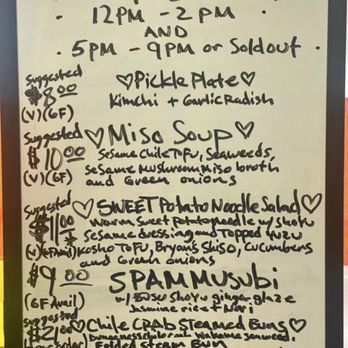 12PM - 2PM
AND
• 5PM - 9PM or Sold out •
Suggested
$8.00
(V)(GF)
♡Pickle Plate♡
Kimchi + Garlic Radish
Suggested
$10.00
(V)(GF)
♡Miso Soup♡
Sesame Chile Tofu, Seaweeds,
Sesame Mushroom Miso broth
and Green onions
Suggested
$11.00
(V)(GF Avail)
♡SWEET Potato Noodle Salad♡
Warm Sweet potato noodle w/ Shoyu
Sesame dressing and Topped w/ Yuzu
Kosho Tofu, Bryan's Shiso, Cucumbers
and Green onions
$9.00
(GF Avail)
SPAM Musubi
w/ Shoyu ginger glaze
Jasmine rice + Nori
Suggested
$21.00
♡Chile Crab Steamed Buns♡
Dungeness wakame seaweed,
Folded Steam Bun